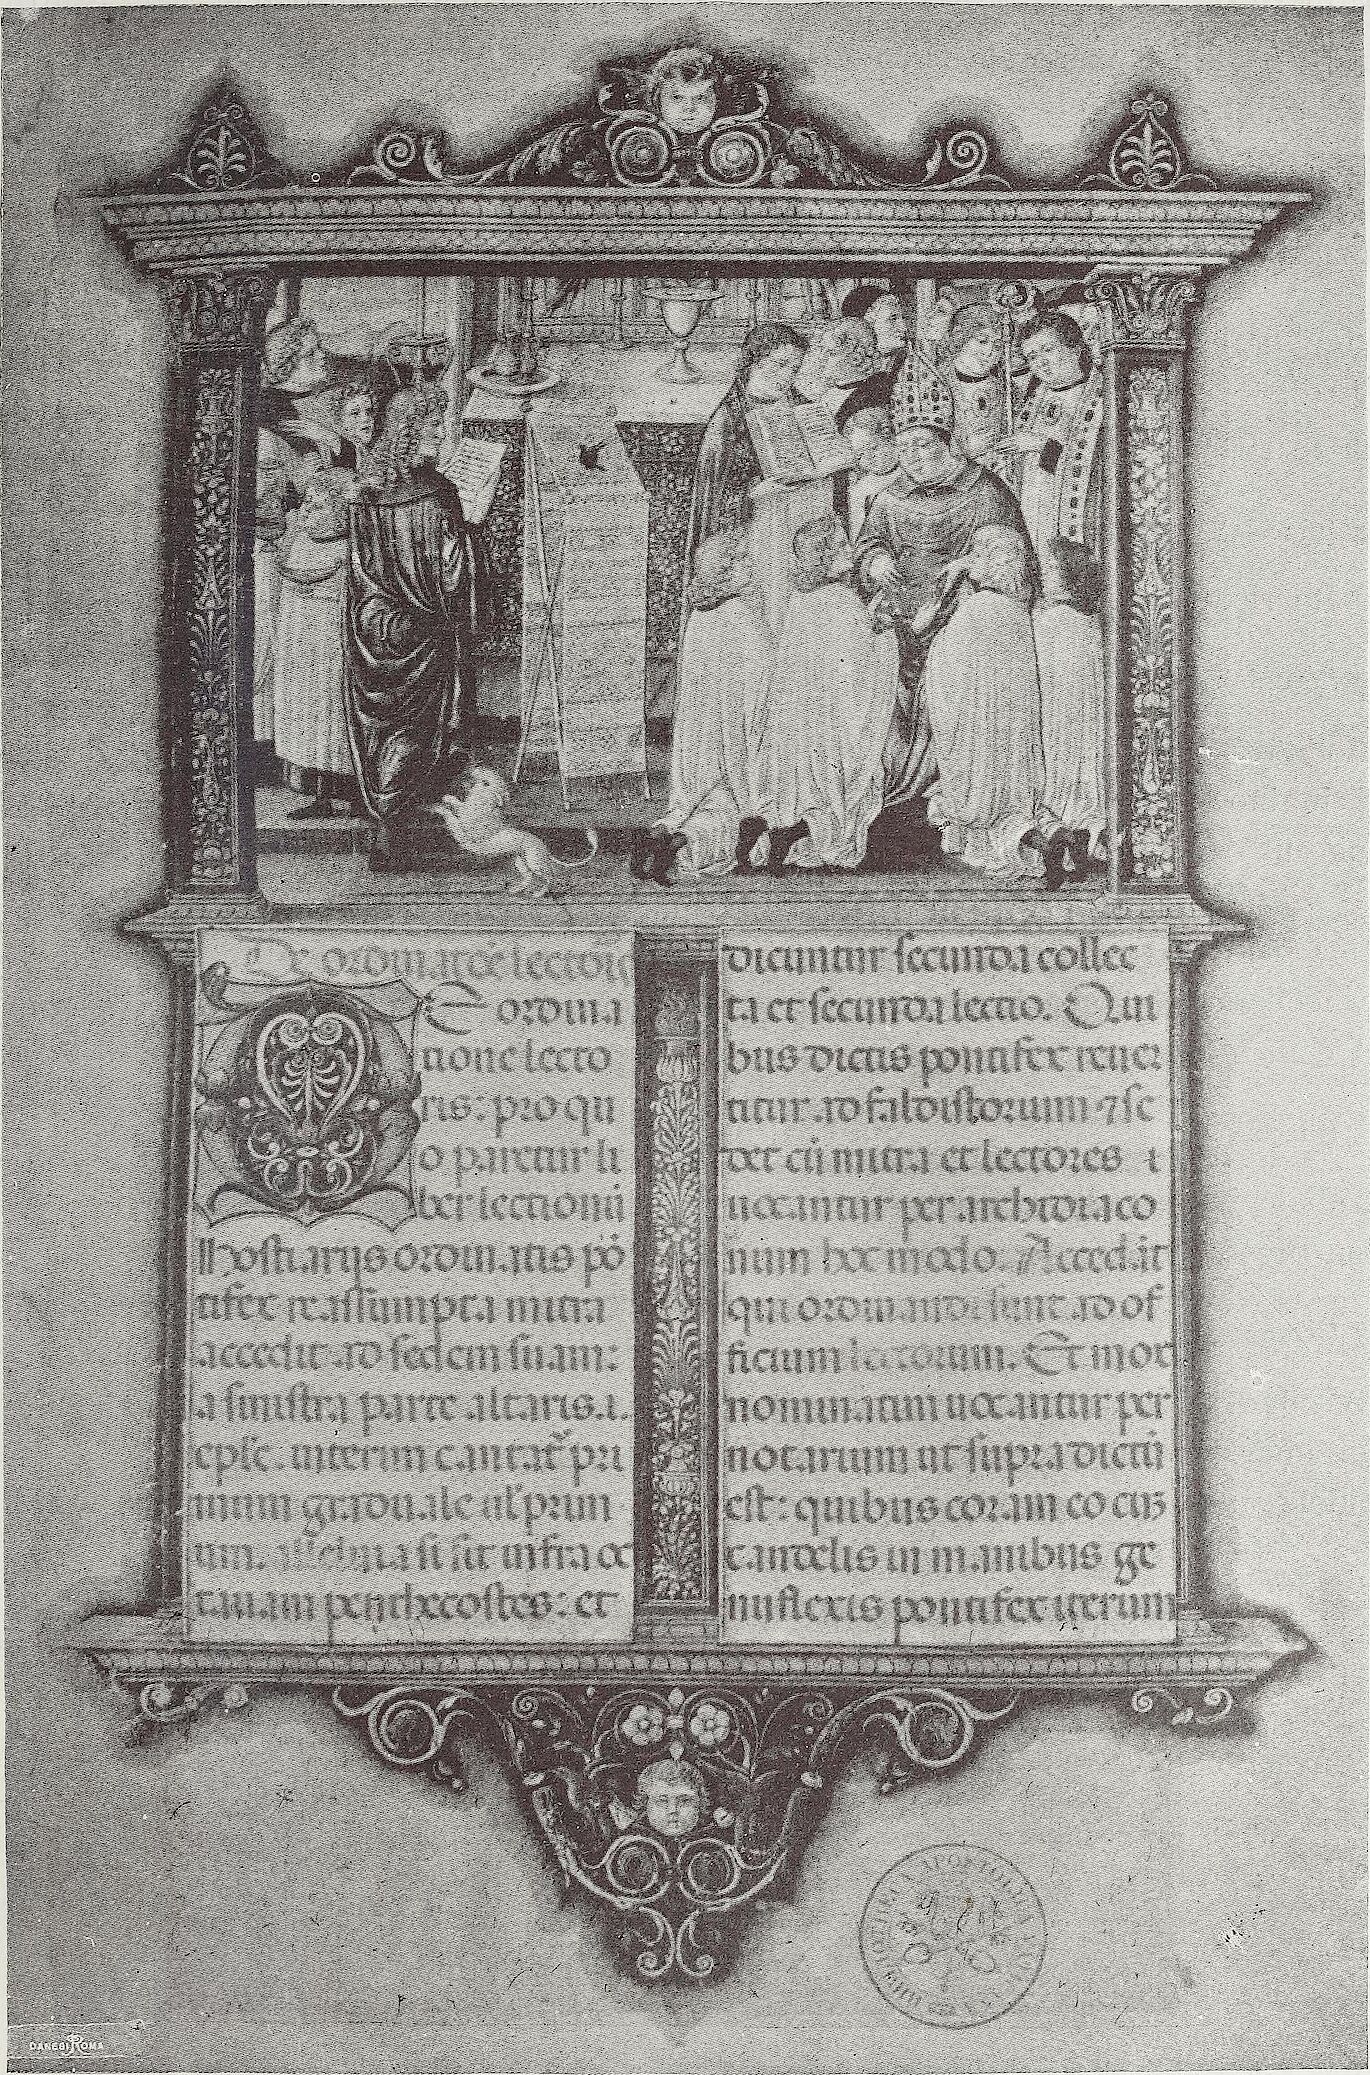 De ordinatõe lectorũ
De ordina
tione lecto
ris: pro qu
o paretur li
ber lectionũ
Hostiariis ordinatis põ
tifex reassumpta mitra
accedit ad sedem suam:
a sinistra parte altaris. i.
epłe. interim cantat̃ pri
mum graduale ul̃ prim
um. alleluia si sit infra oc
tauam penthecostes: et
dicuntur secunda collec
ta et secunda lectio. Qui
bus dictis pontifex reuer
titur ad faldistorium ⁊ se
det cũ mitra et lectores
uocantur per archidiaco
num hoc modo. Accedāt
qui ordinandi sunt ad of
ficium lectorum. Et mox
nominatim uocantur per
notarium ut supra dictũ
est: quibus coram eo cuʒ
candelis in manibus ge
nuflexis pontifex iterum
DANESI ROMA